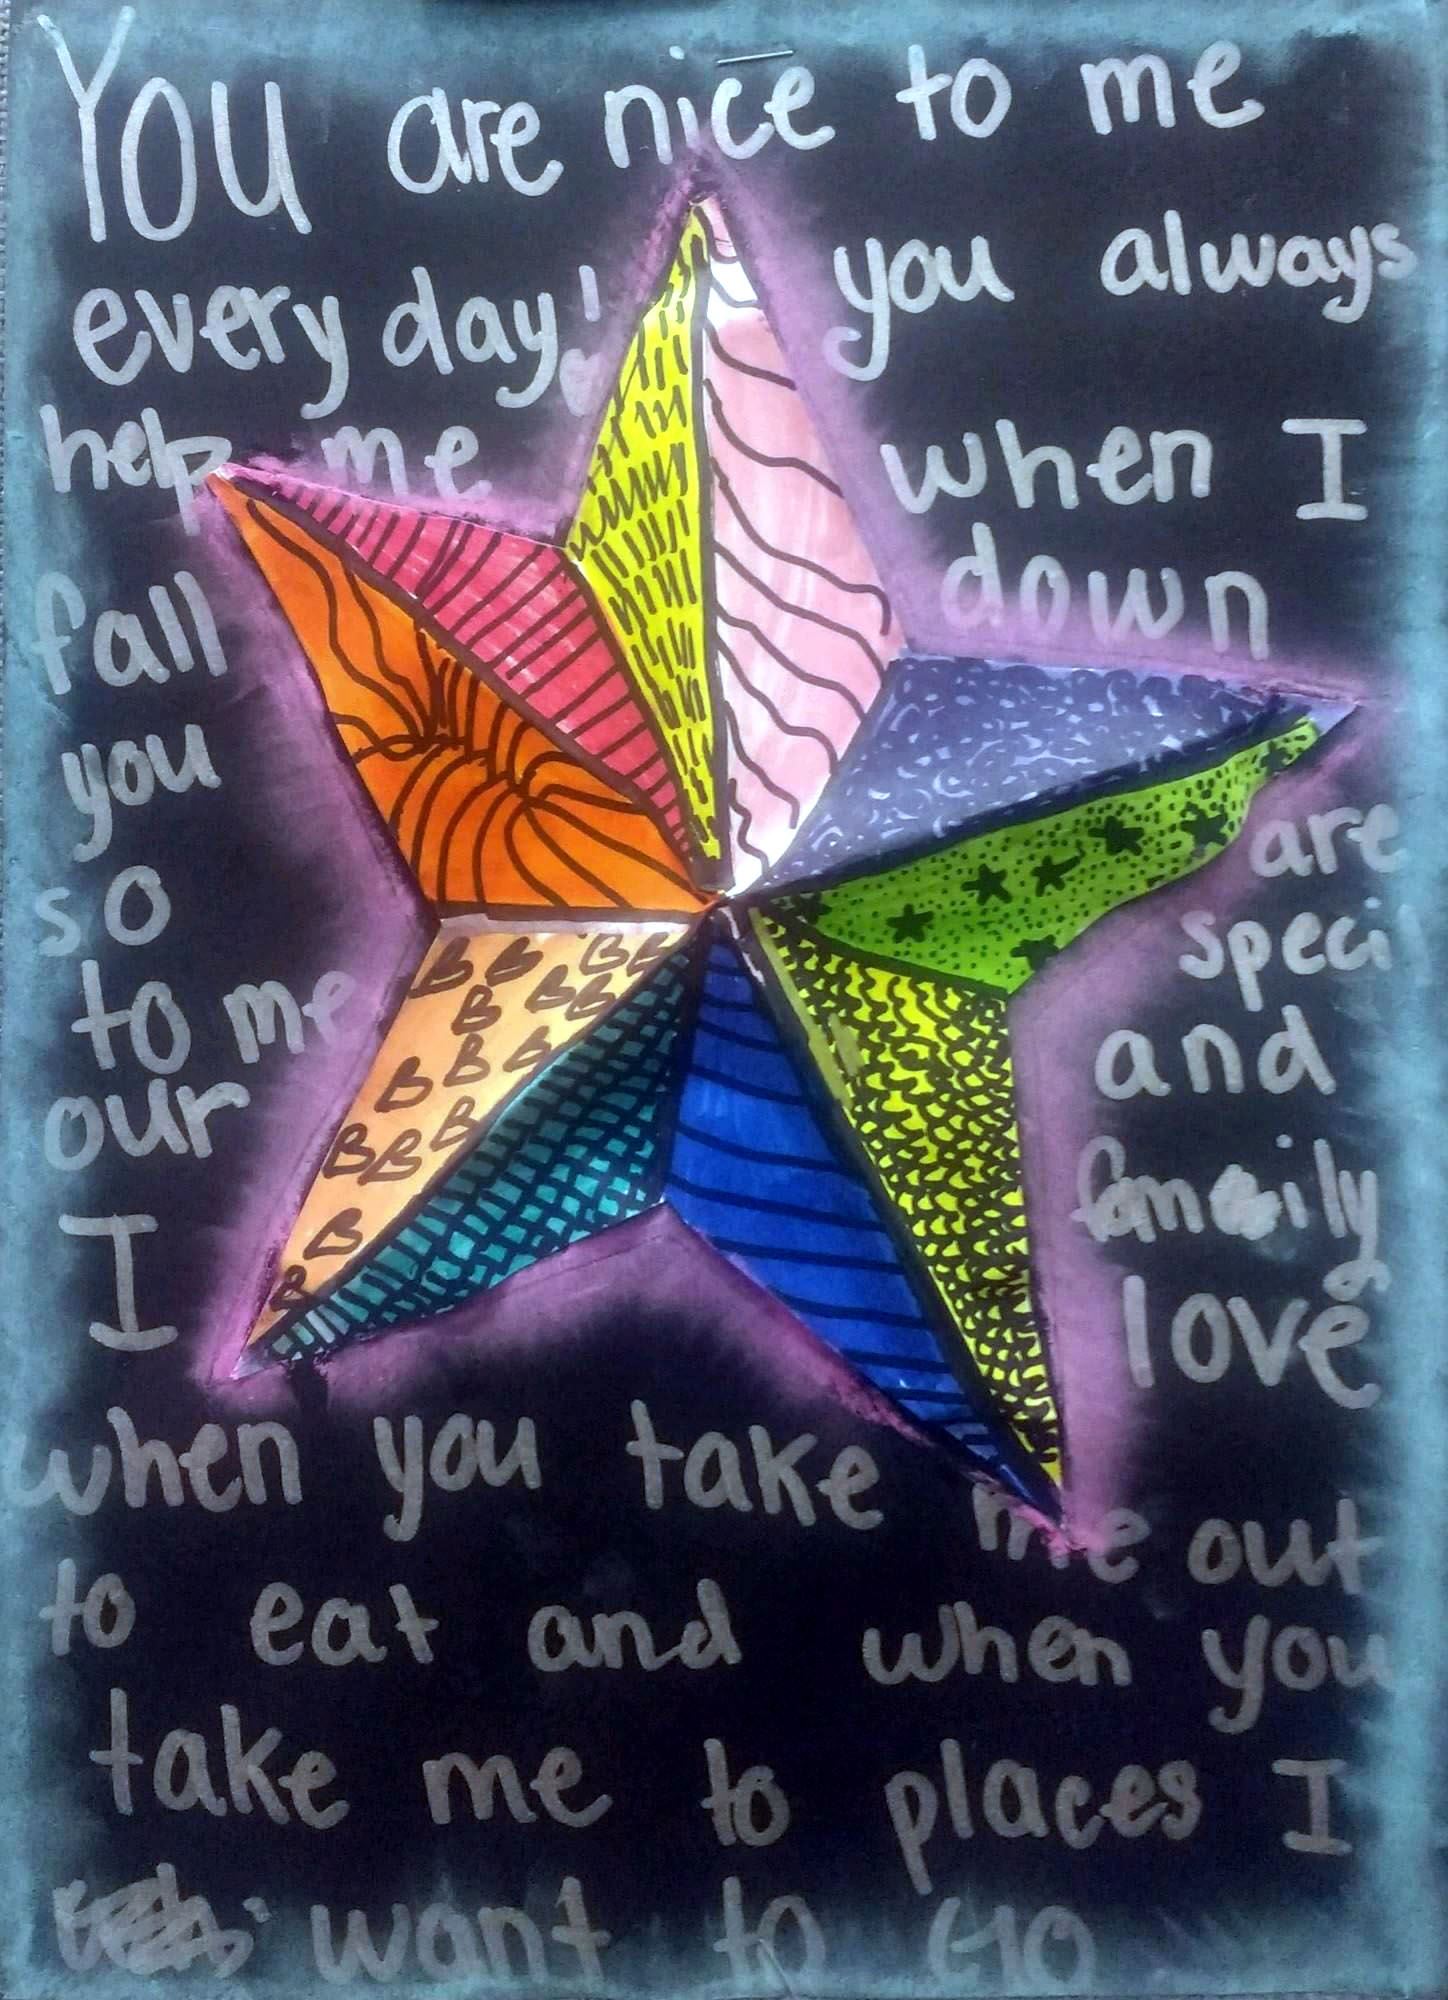 You are nice to me
every day! you always
help me when I
fall down
you are
so speci
to me and
our family
I love
when you take me out
to eat and when you
take me to places I
want to GO